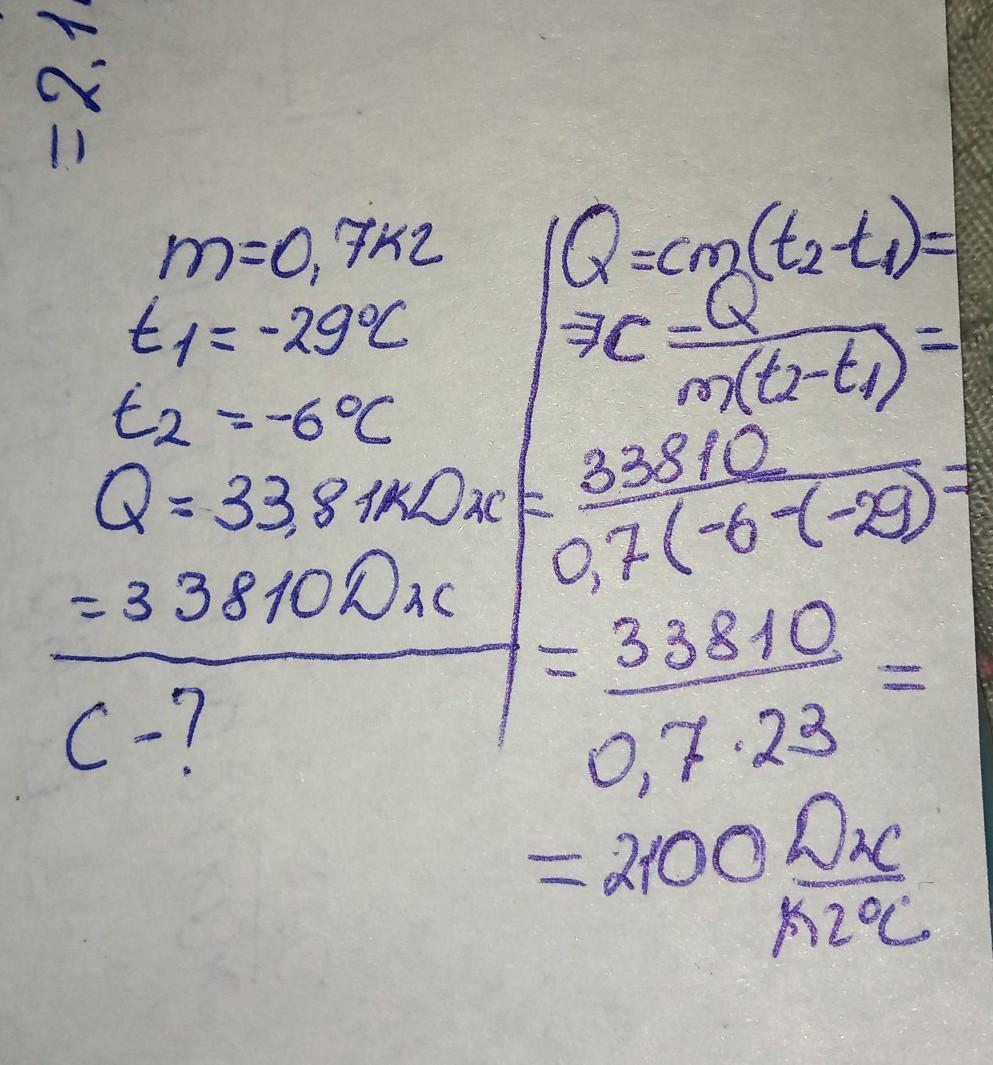 = 2.1
m=0,7кг
t₁= -29°C
t₂ = -6°C
Q = 33,81кДж =
= 33810Дж
C - ?
Q = cm(t₂-t₁) =
⇒ C = Q/(m(t₂-t₁)) =
33810/(0,7(-6-(-29)) =
= 33810/(0,7·23) =
= 2100 Дж/кг°C